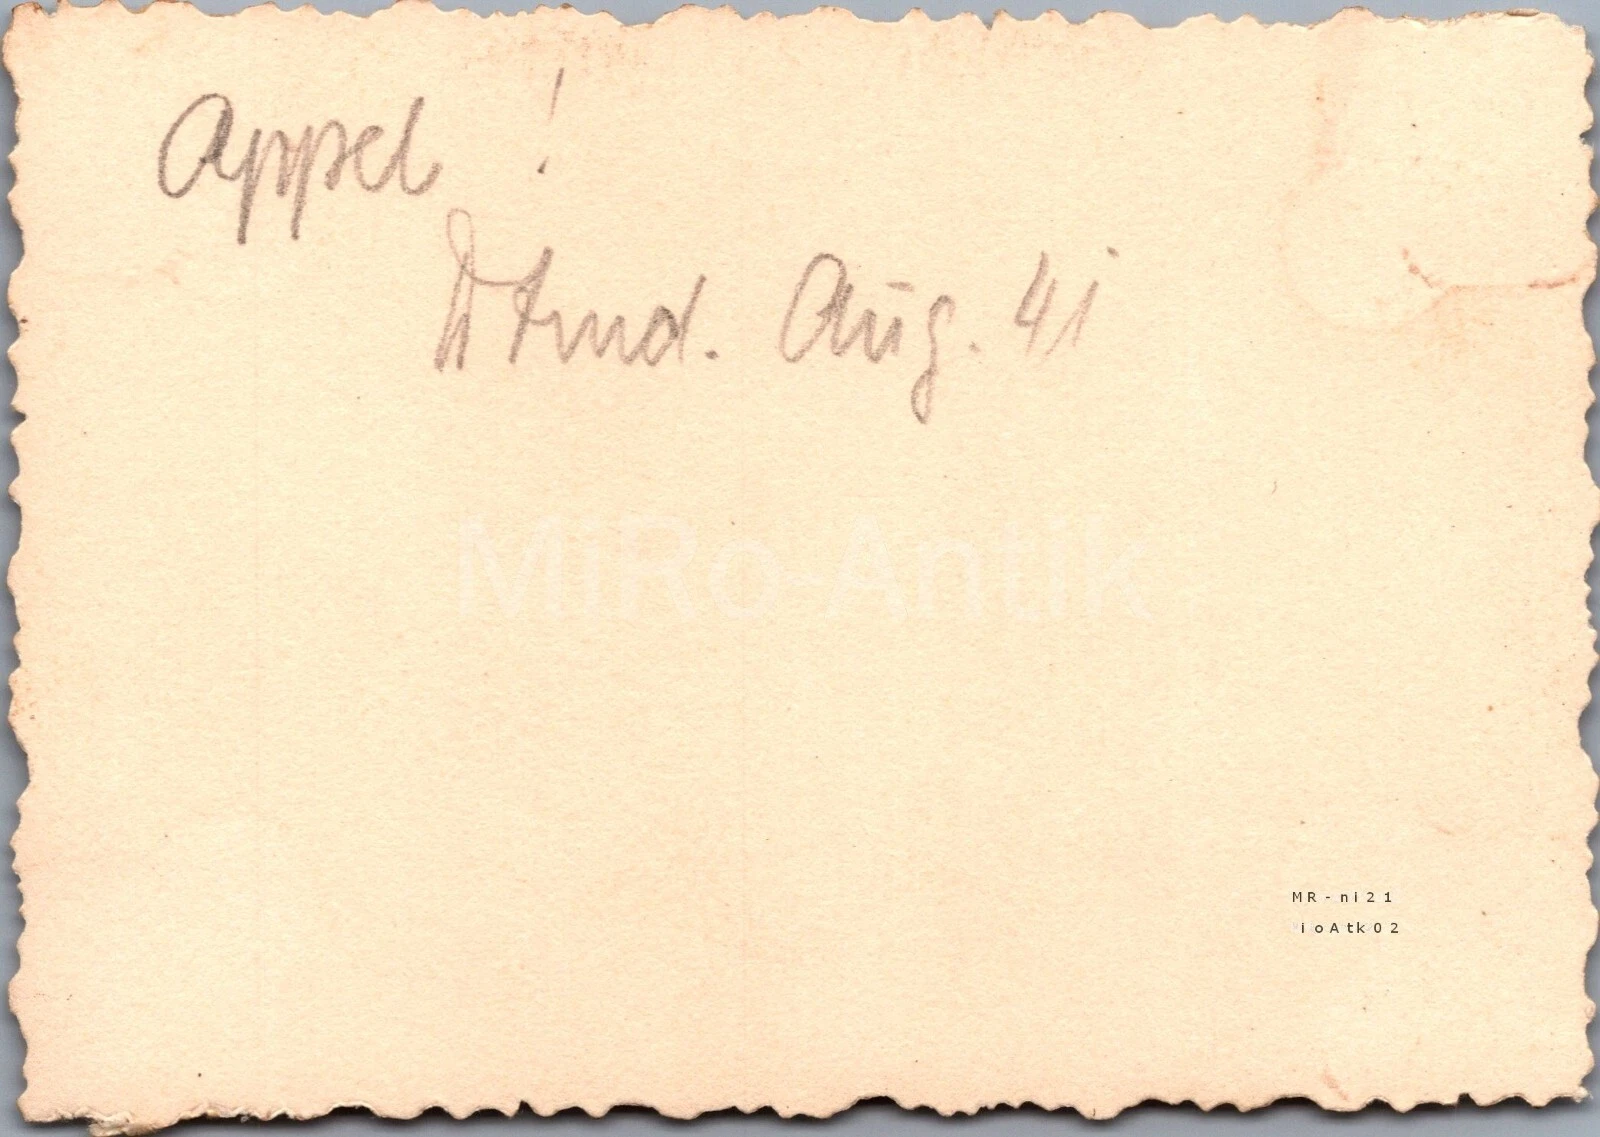 Appel !
Aug. 41
MiRo-Antik
MR-ni21
ioAtk02